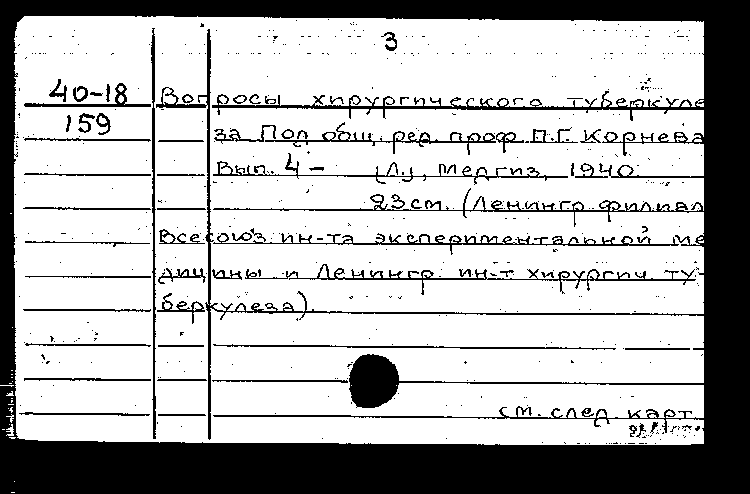 3
40-18 Вопросы хирургического туберкуле
159 за Под общ. ред. проф. П.Г. Корнева
Вып. 4 – [Л.], Медгиз, 1940.
23 см. (Ленингр. филиал
Всесоюз. ин-та экспериментальной ме
дицины и Ленингр. ин-т хирургич. ту-
беркулеза).
см. след. карт.